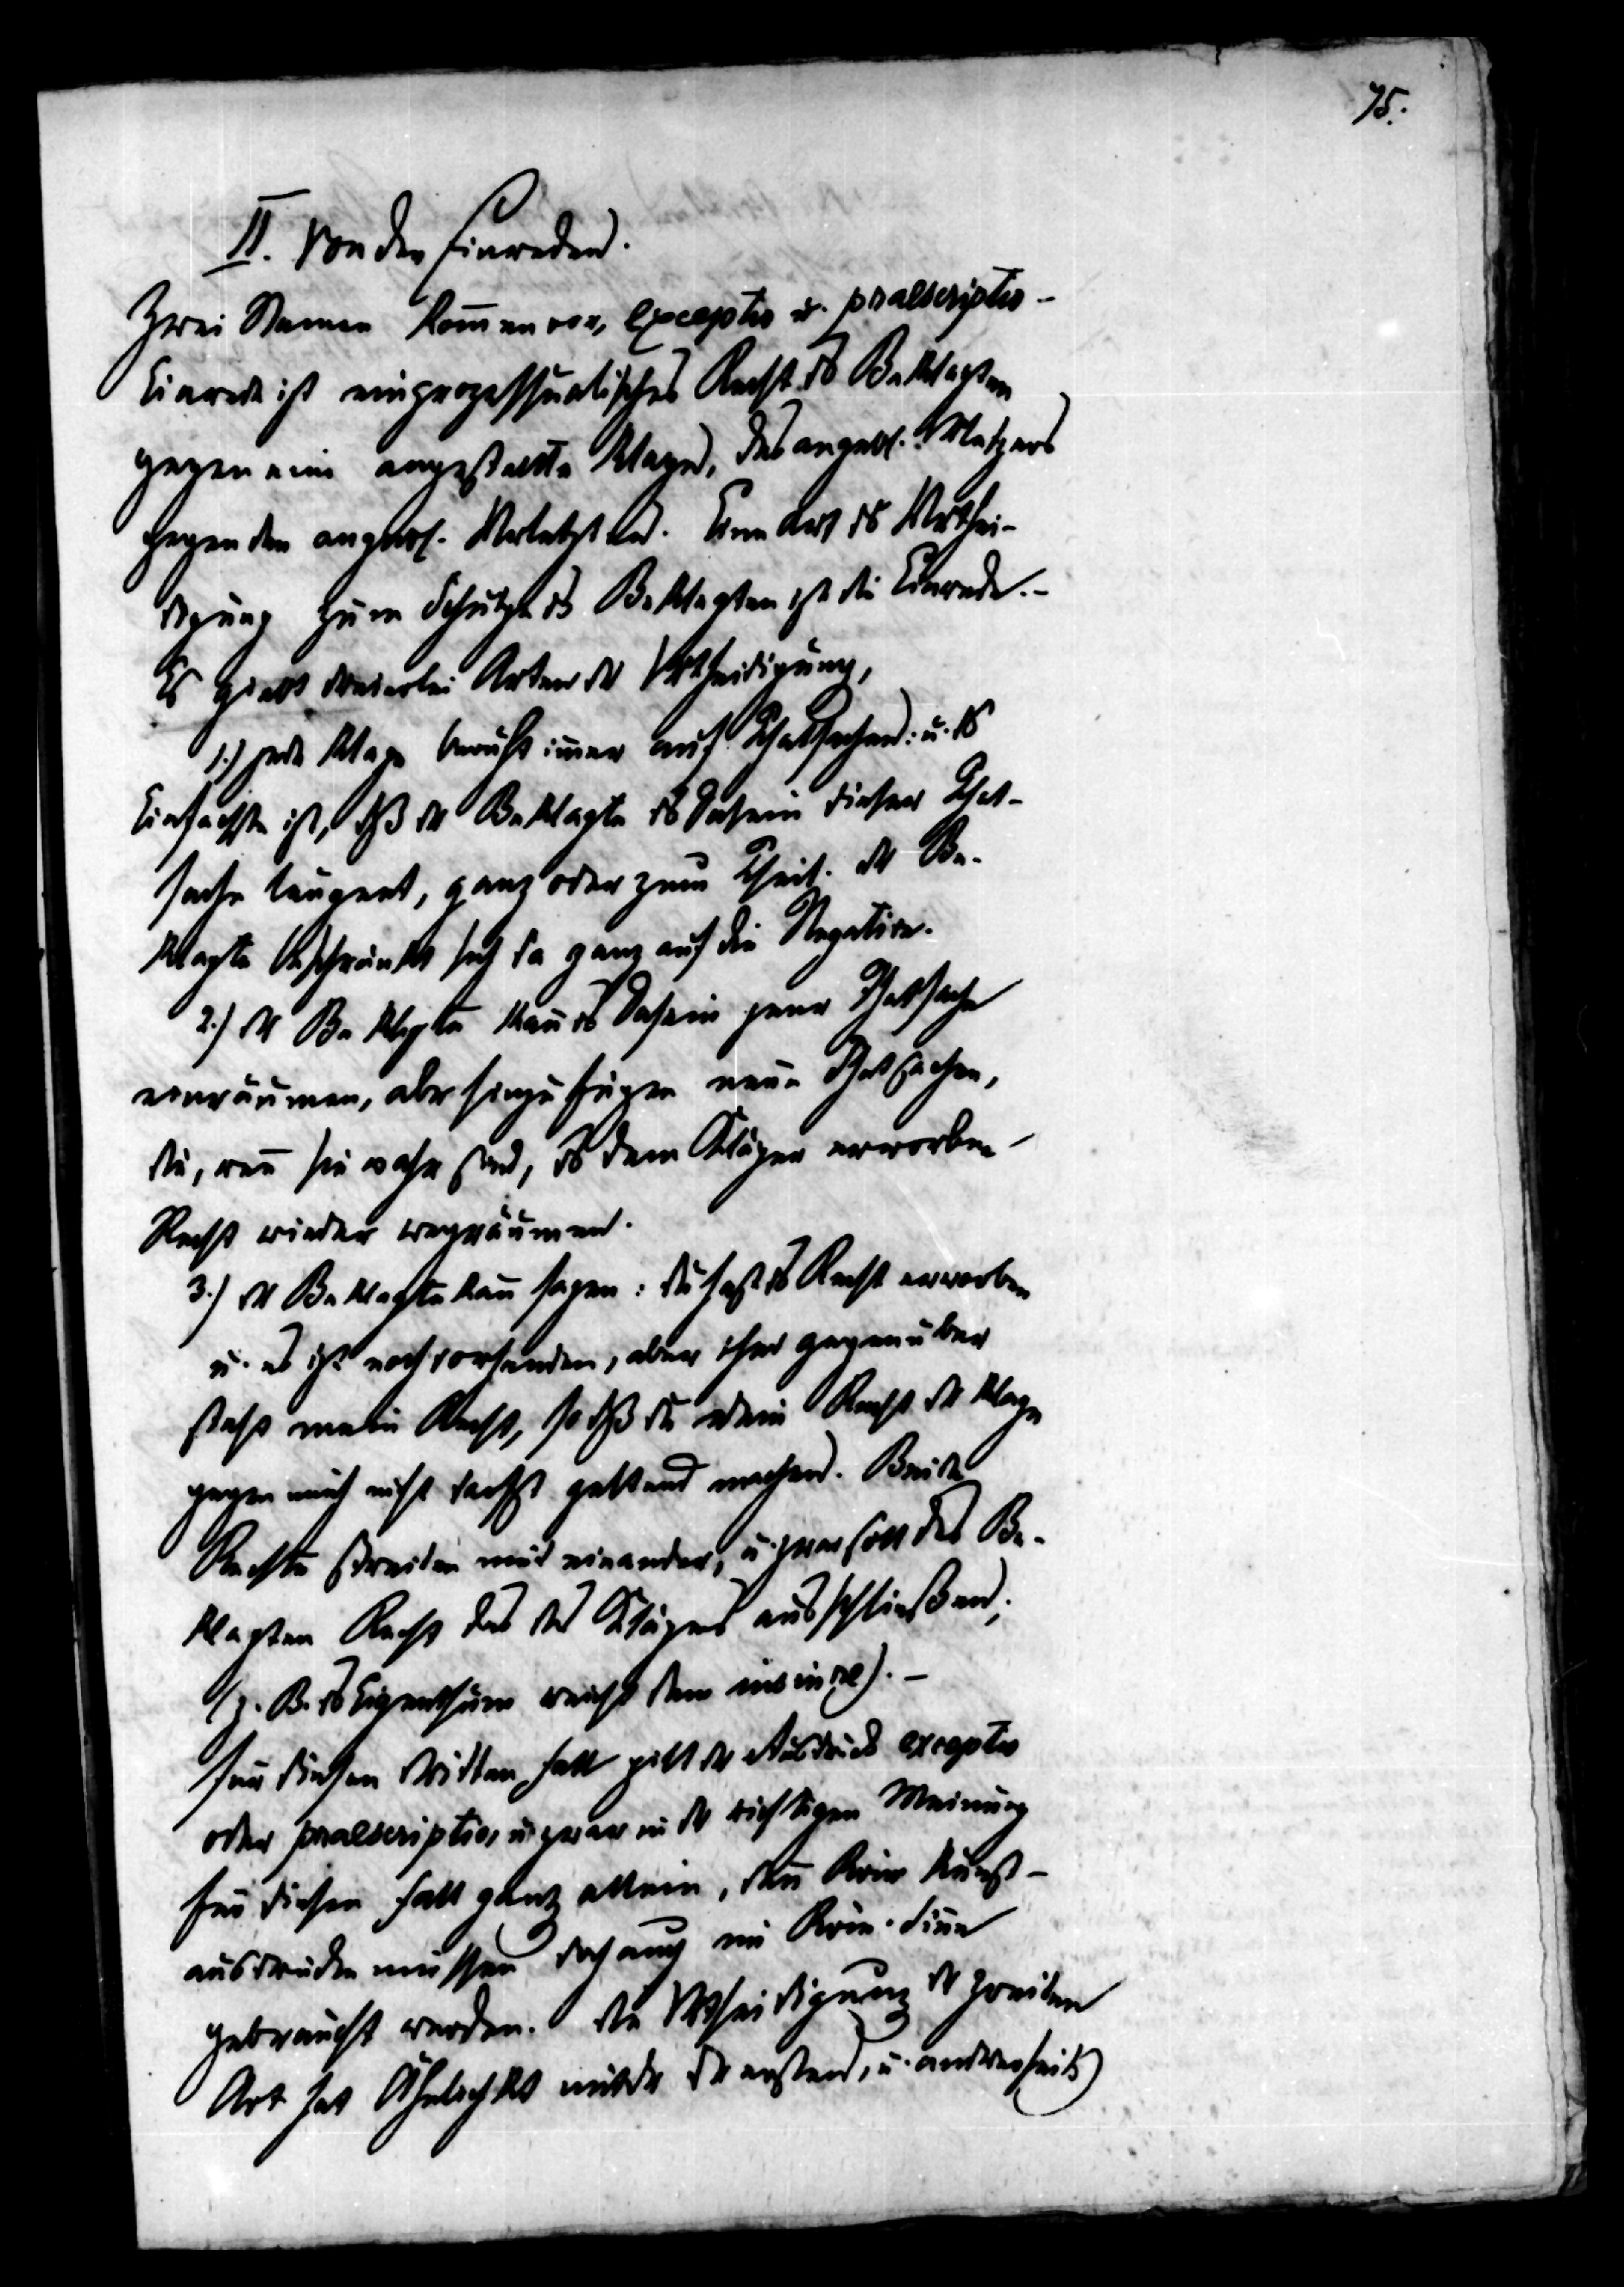 75.
II. Von den Einreden.
Zwei Namen kom̄en vor, exceptio u. praescriptio -
Einrede ist ein prozessualisches Recht ds Beklagten
gegen eine angestellte Klage, des angebl. Verletzers
gegen den angebl. Verletzten. Eine Art ds Verthei-
digung zum Schutze ds Beklagten ist die Einrede. -
Es giebt dreierlei Arten dr Vertheidigung,
1.) jede Klage beruht im̄er auf Thatsachen: u. ds
Einfachste ist, dß dr Beklagte ds Dasein dieser That-
sache leugnet, ganz oder zum Theil. dr Be-
klagte beschränkt sich da ganz auf die Negative.
2.) dr Beklagte kan̄ ds Dasein jener Thatsache
einräumen, aber hinzufügen neue Thatsachen,
die, wen̄ sie wahr sind, ds dem Kläger erworbene
Recht wieder wegräumen.
3.) dr Beklagte kan̄ sagen: du hast ds Recht erworben
u. es ist noch vorhanden, aber ihm gegenüber
steht mein Recht, so dß du dein Recht dr Klage
gegen mich nicht darfst geltend machen. Beide
Rechte streiten mit einander, u. zwar soll des Be-
klagten Recht das des Klägers ausschließen;
(z. B. ds Eigenthum weicht dem ius in re). -
Für diesen dritten Fall gilt dr Ausdruck exceptio
oder praescriptio, u. zwar in dr richtigen Meinung
für diesen Fall ganz allein, den̄ Röm Kunst-
ausdrücke müssen doch auch im Röm. Sinne
gebraucht werden. die Vertheidigung dr zweiten
Art hat Ähnlichkt mit dr dr ersten, u. andrerseits